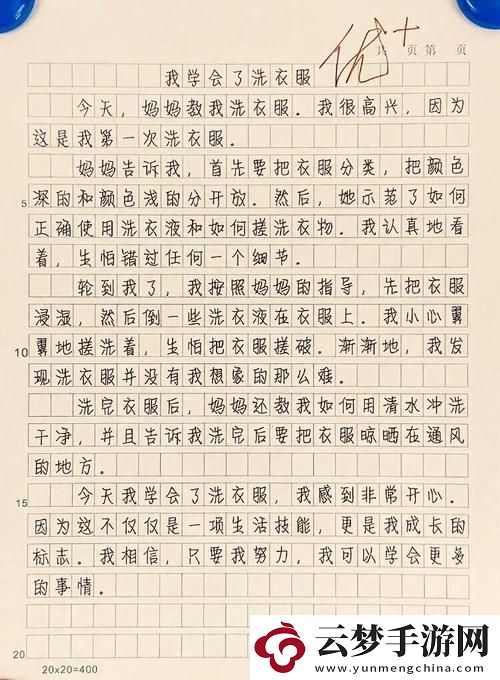 优+
共 页 第 页
我学会了洗衣服
今天，妈妈教我洗衣服。我很高兴，因为
这是我第一次洗衣服。
妈妈告诉我，首先要把衣服分类，把颜色
5 深的和颜色浅的分开放。然后，她示范了如何
正确使用洗衣液和如何搓洗衣物。我认真地看
着，生怕错过任何一个细节。
轮到我了，我按照妈妈的指导，先把衣服
浸湿，然后倒一些洗衣液在衣服上。我小心翼
10 翼地搓洗着，生怕把衣服搓破。渐渐地，我发
现洗衣服并没有我想象的那么难。
洗完衣服后，妈妈还教我如何用清水冲洗
干净，并且告诉我洗完后要把衣服晾晒在通风
的地方。
15 今天我学会了洗衣服，我感到非常开心。
因为这不仅仅是一项生活技能，更是我成长的
标志。我相信，只要我努力，我可以学会更多
的事情。
20
20x20=400
云梦手游网
www.yunmengchina.com